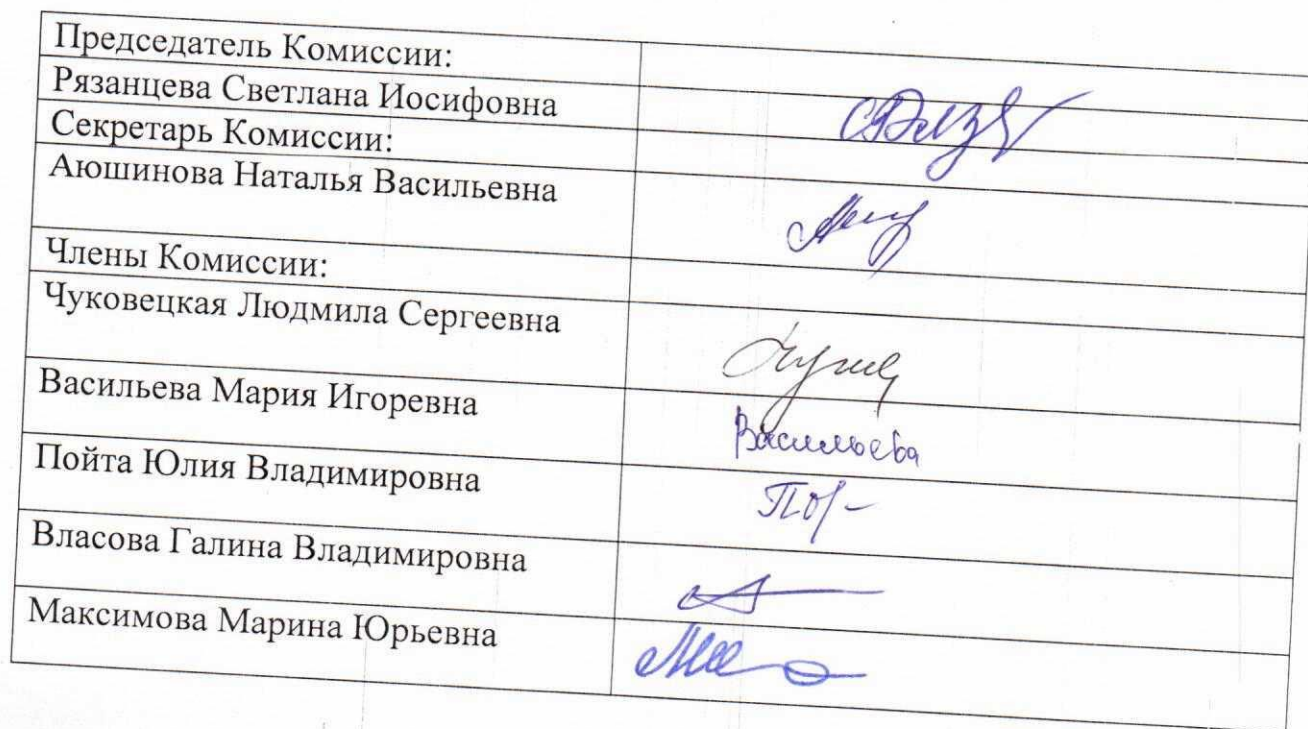 Председатель Комиссии:
Рязанцева Светлана Иосифовна
Секретарь Комиссии:
Аюшинова Наталья Васильевна
Члены Комиссии:
Чуковецкая Людмила Сергеевна
Васильева Мария Игоревна
Васильева
Пойта Юлия Владимировна
Власова Галина Владимировна
Максимова Марина Юрьевна